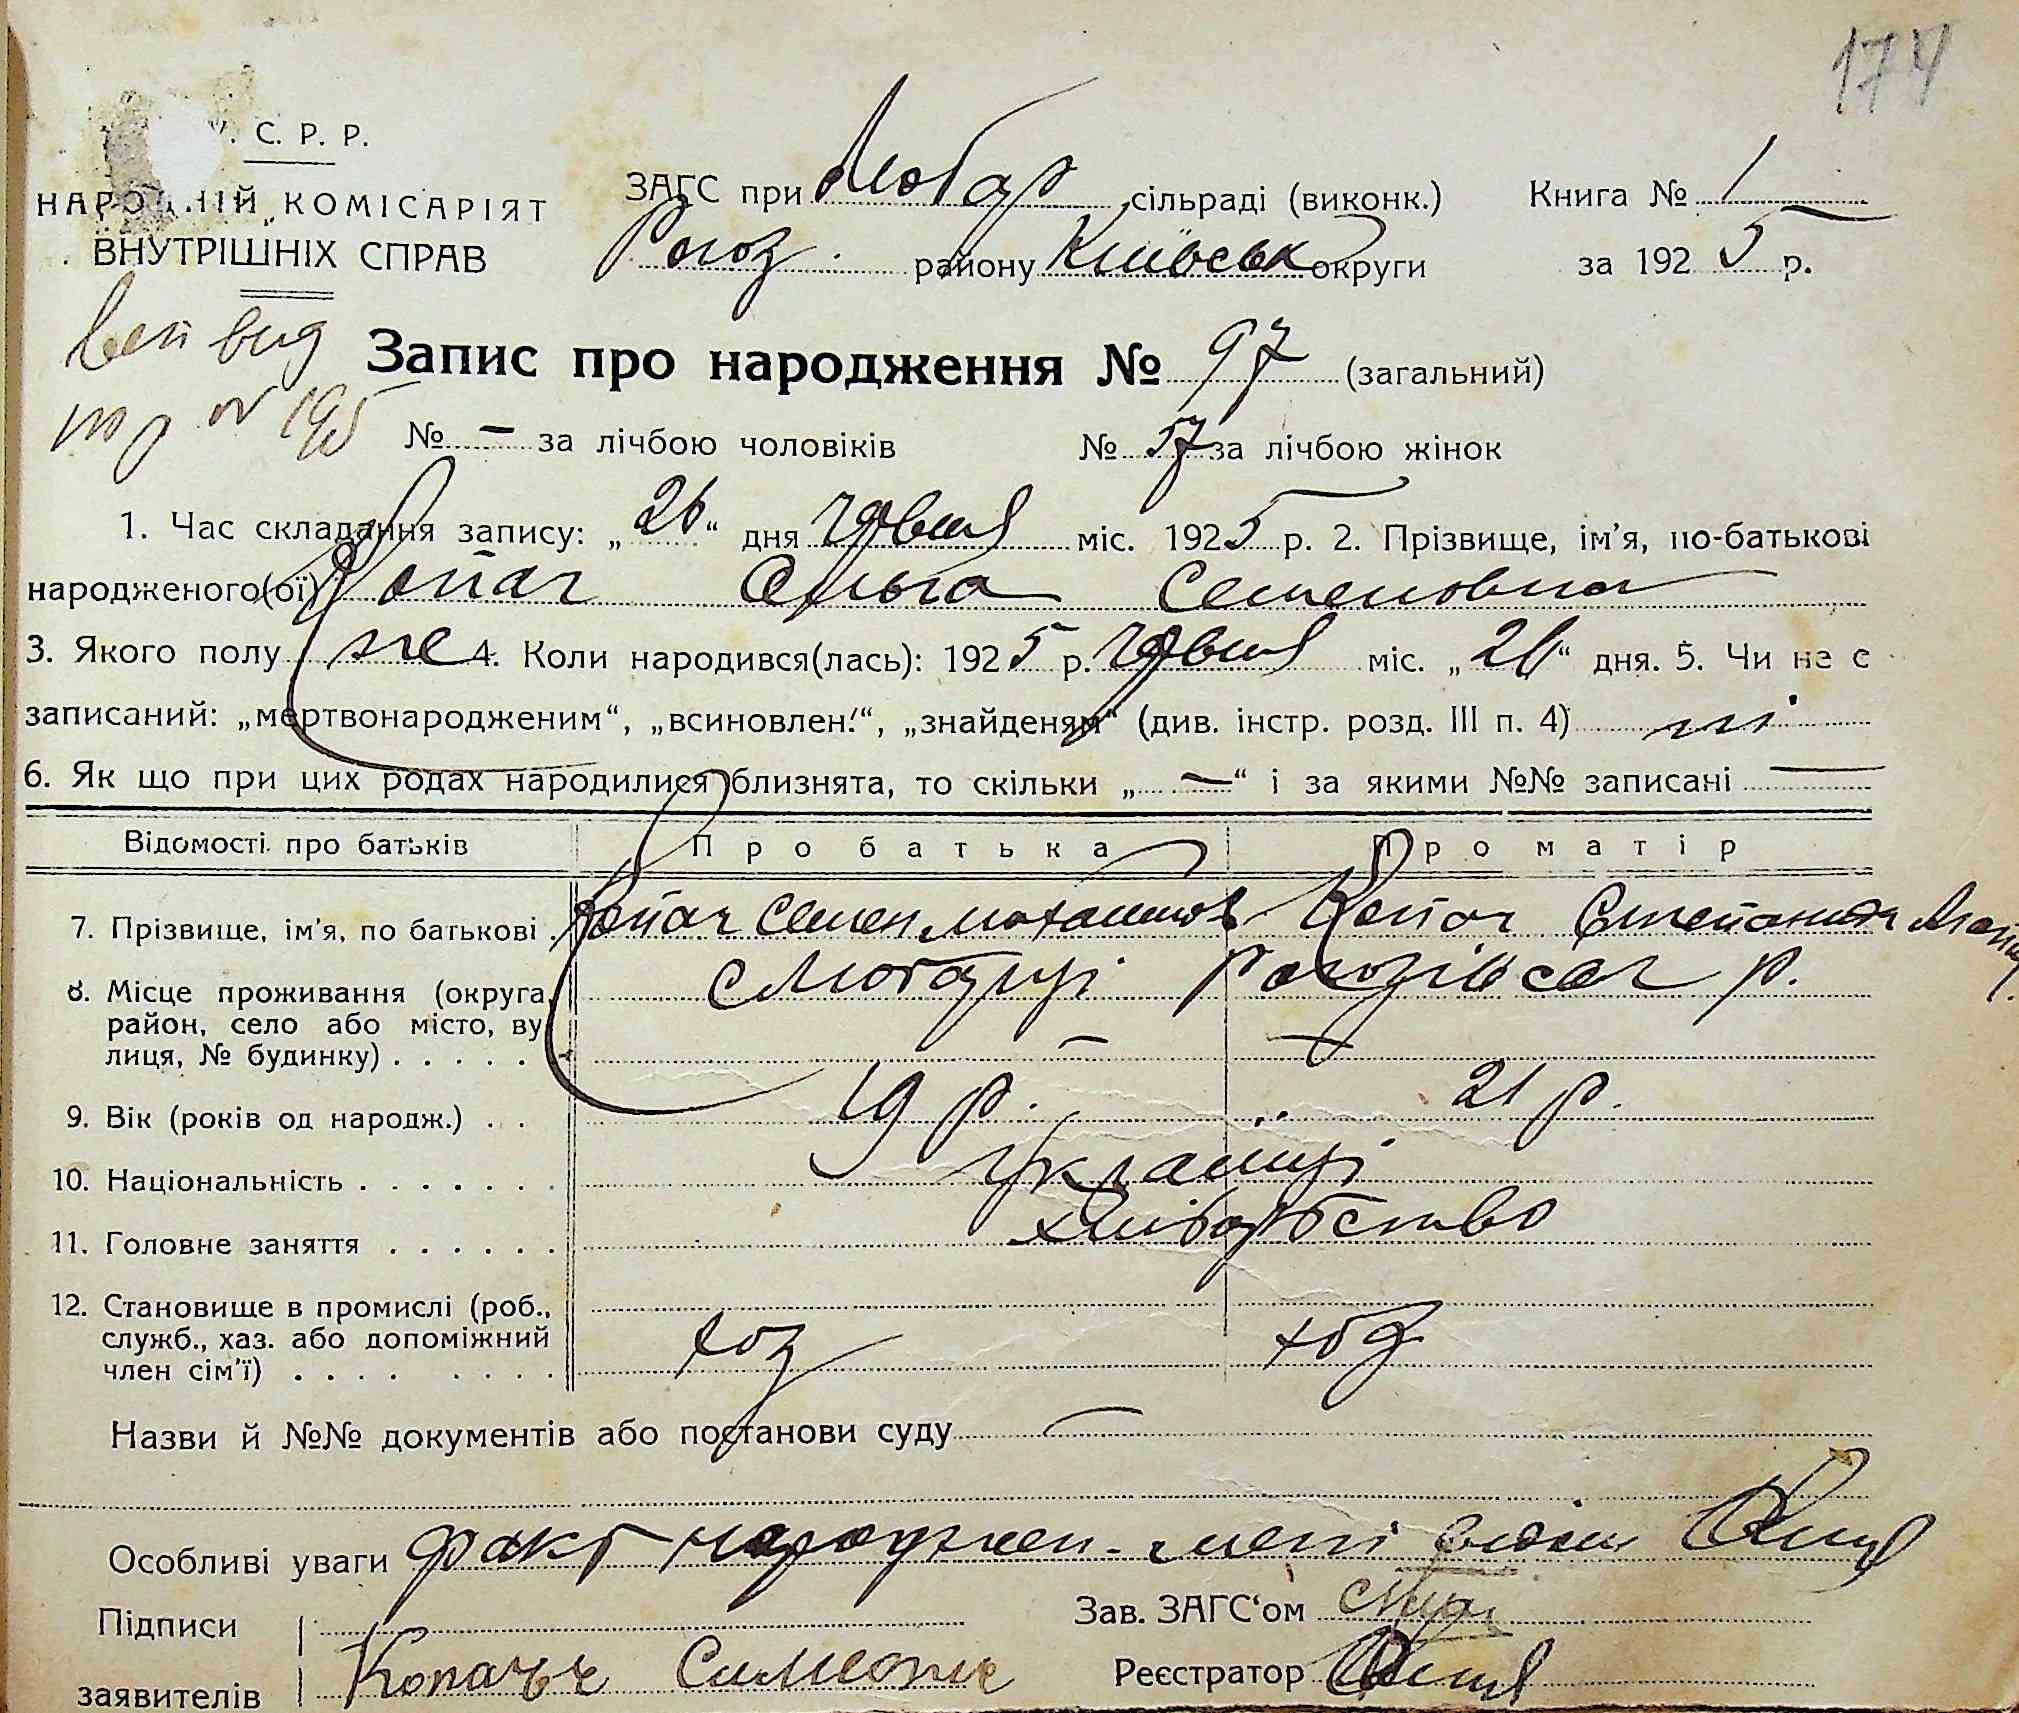 174
У. С. Р. Р.
НАРОДНІЙ КОМІСАРІЯТ
ВНУТРІШНІХ СПРАВ
ЗАГС при Любар сільраді (виконк.)
Рогоз. району Київськ округи
Книга № 1
за 1925 р.
вид
Запис про народження № 97 (загальний)
№ — за лічбою чоловіків № 57 за лічбою жінок
1. Час складання запису: „26“ дня червня міс. 1925 р. 2. Прізвище, ім'я, по-батькові
народженого(ої) Копач Ольга Семеновна
3. Якого полу же 4. Коли народився(лась): 1925 р. червня міс. „26“ дня. 5. Чи не є
записаний: „мертвонародженим“, „всиновлен.“, „знайденям“ (див. інстр. розд. III п. 4) ні
6. Як що при цих родах народилися близнята, то скільки „—“ і за якими №№ записані —
Відомості про батьків Про батька Про матір
7. Прізвище, ім'я, по батькові . Копач Семен Копач Степанида
8. Місце проживання (округа, район, село або місто, вулиця, № будинку) . . . . . с Любарці Рогозівськ р. — —
9. Вік (років од народж.) . . 19 р. 21 р.
10. Національність . . . . . . . Українці
11. Головне заняття . . . . . . хліборобство
12. Становище в промислі (роб., служб., хаз. або допоміжний член сім'ї) . . . . . . . . хоз
Назви й №№ документів або постанови суду —
Особливі уваги факт народжен. мені відом
Підписи
заявителів Копачъ
Зав. ЗАГС'ом
Реєстратор